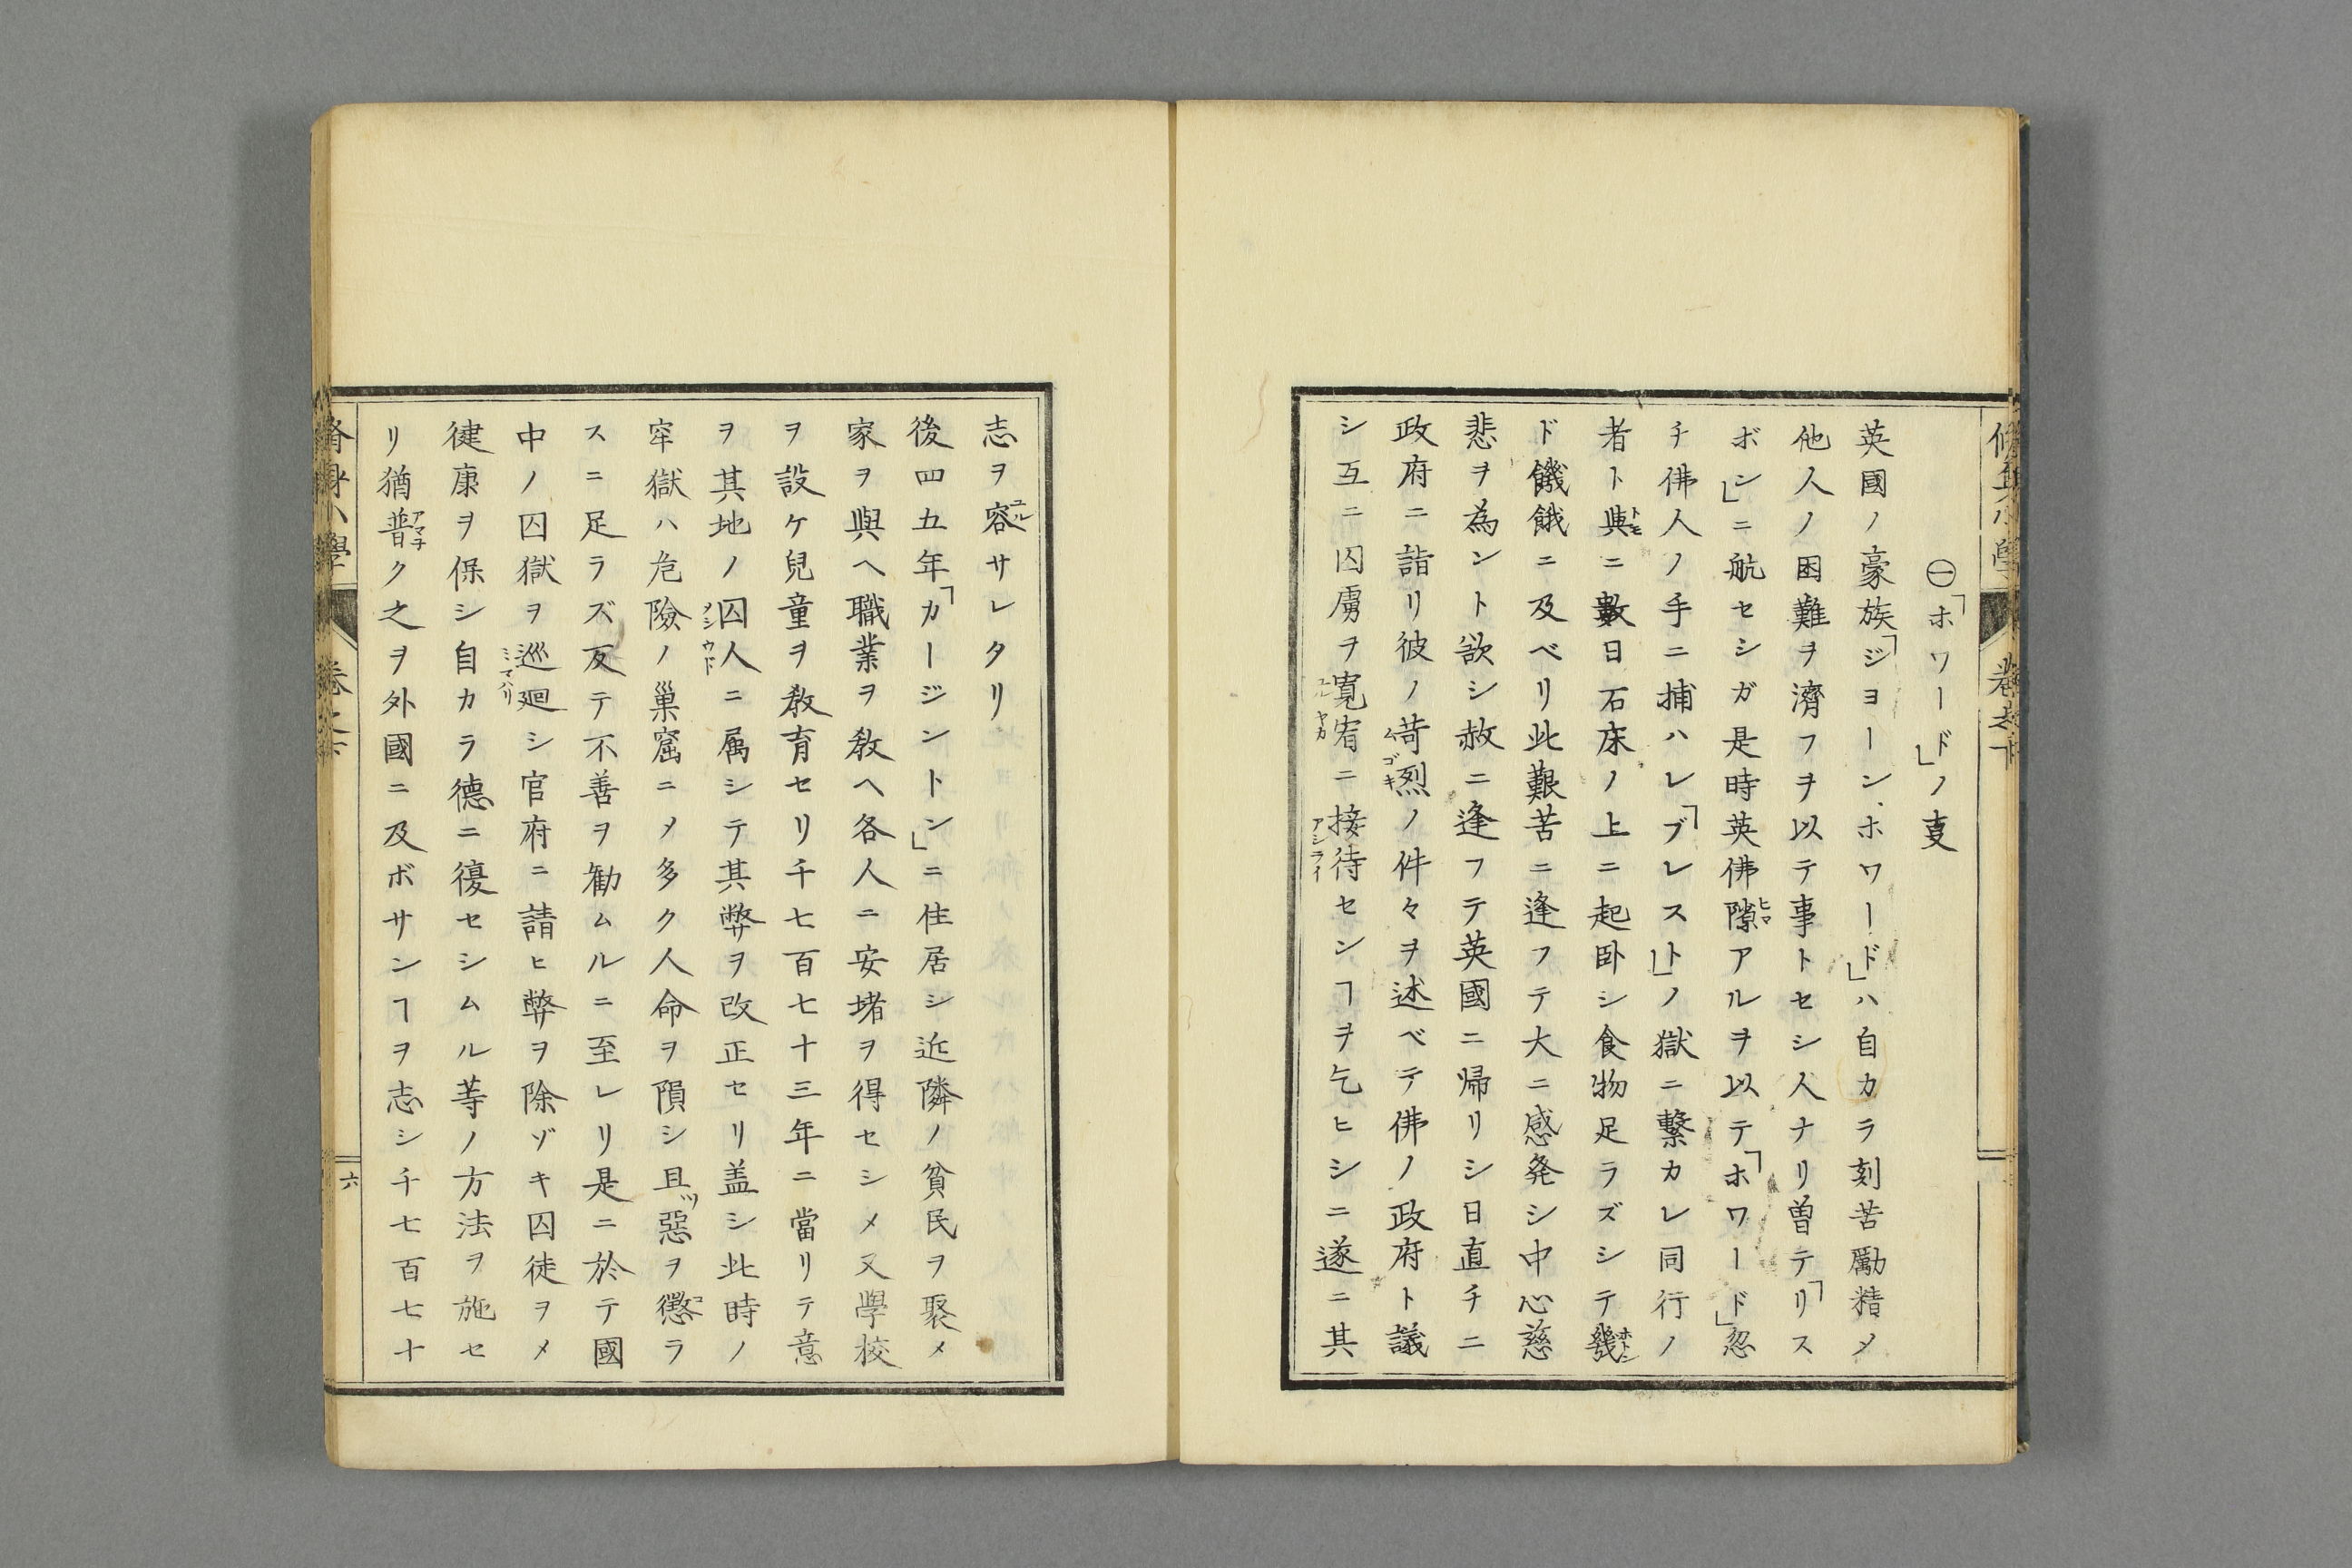 ㊀「ホワード」ノ叓
英國ノ豪族「ジヨーン、ホワード」ハ自カラ刻苦勵精〆
他人ノ困難ヲ濟フヲ以テ事トセシ人ナリ曽テ「リス
ボン」ニ航セシガ是時英佛隙アルヲ以テ「ホワード」忽
チ佛人ノ手ニ捕ハレ「ブレスト」ノ獄ニ繫カレ同行ノ
者ト與ニ數日石床ノ上ニ起卧シ食物足ラズシテ幾
ド饑餓ニ及ベリ此艱苦ニ逢フテ大ニ感発シ中心慈
悲ヲ為ント欲シ赦ニ逢フテ英國ニ帰リシ日直チニ
政府ニ詣リ彼ノ苛烈ノ件々ヲ述ベテ佛ノ政府ト議
シ互ニ囚虜ヲ寬宥ニ接待センヿヲ乞ヒシニ遂ニ其
志ヲ容サレタリ
後四五年「カージントン」ニ住居シ近隣ノ貧民ヲ聚メ
家ヲ與ヘ職業ヲ敎ヘ各人ニ安堵ヲ得セシメ又學校
ヲ設ケ兒童ヲ敎育セリ千七百七十三年ニ當リテ意
ヲ其地ノ囚人ニ属シテ其弊ヲ改正セリ盖シ此時ノ
牢獄ハ危險ノ巢窟ニ〆多ク人命ヲ隕シ且惡ヲ懲ラ
スニ足ラズ反テ不善ヲ勸ムルニ至レリ是ニ於テ國
中ノ囚獄ヲ巡廻シ官府ニ請ヒ弊ヲ除ゾキ囚徒ヲ〆
健康ヲ保シ自カラ德ニ復セシムル等ノ方法ヲ施セ
リ猶普ク之ヲ外國ニ及ボサンヿヲ志シ千七百七十
六